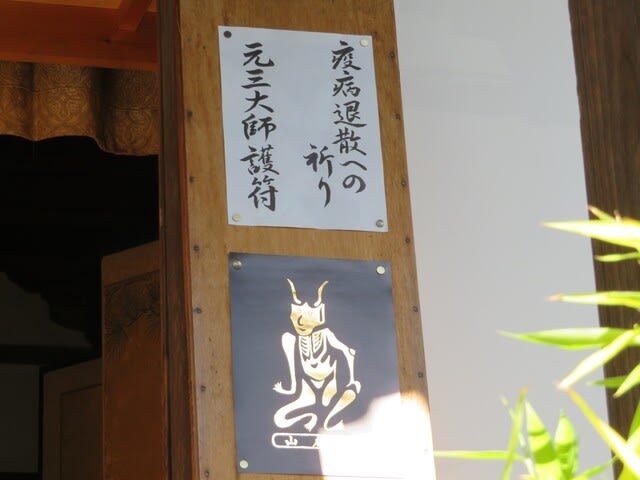 疫病退散への
祈り
元三大師護符
山